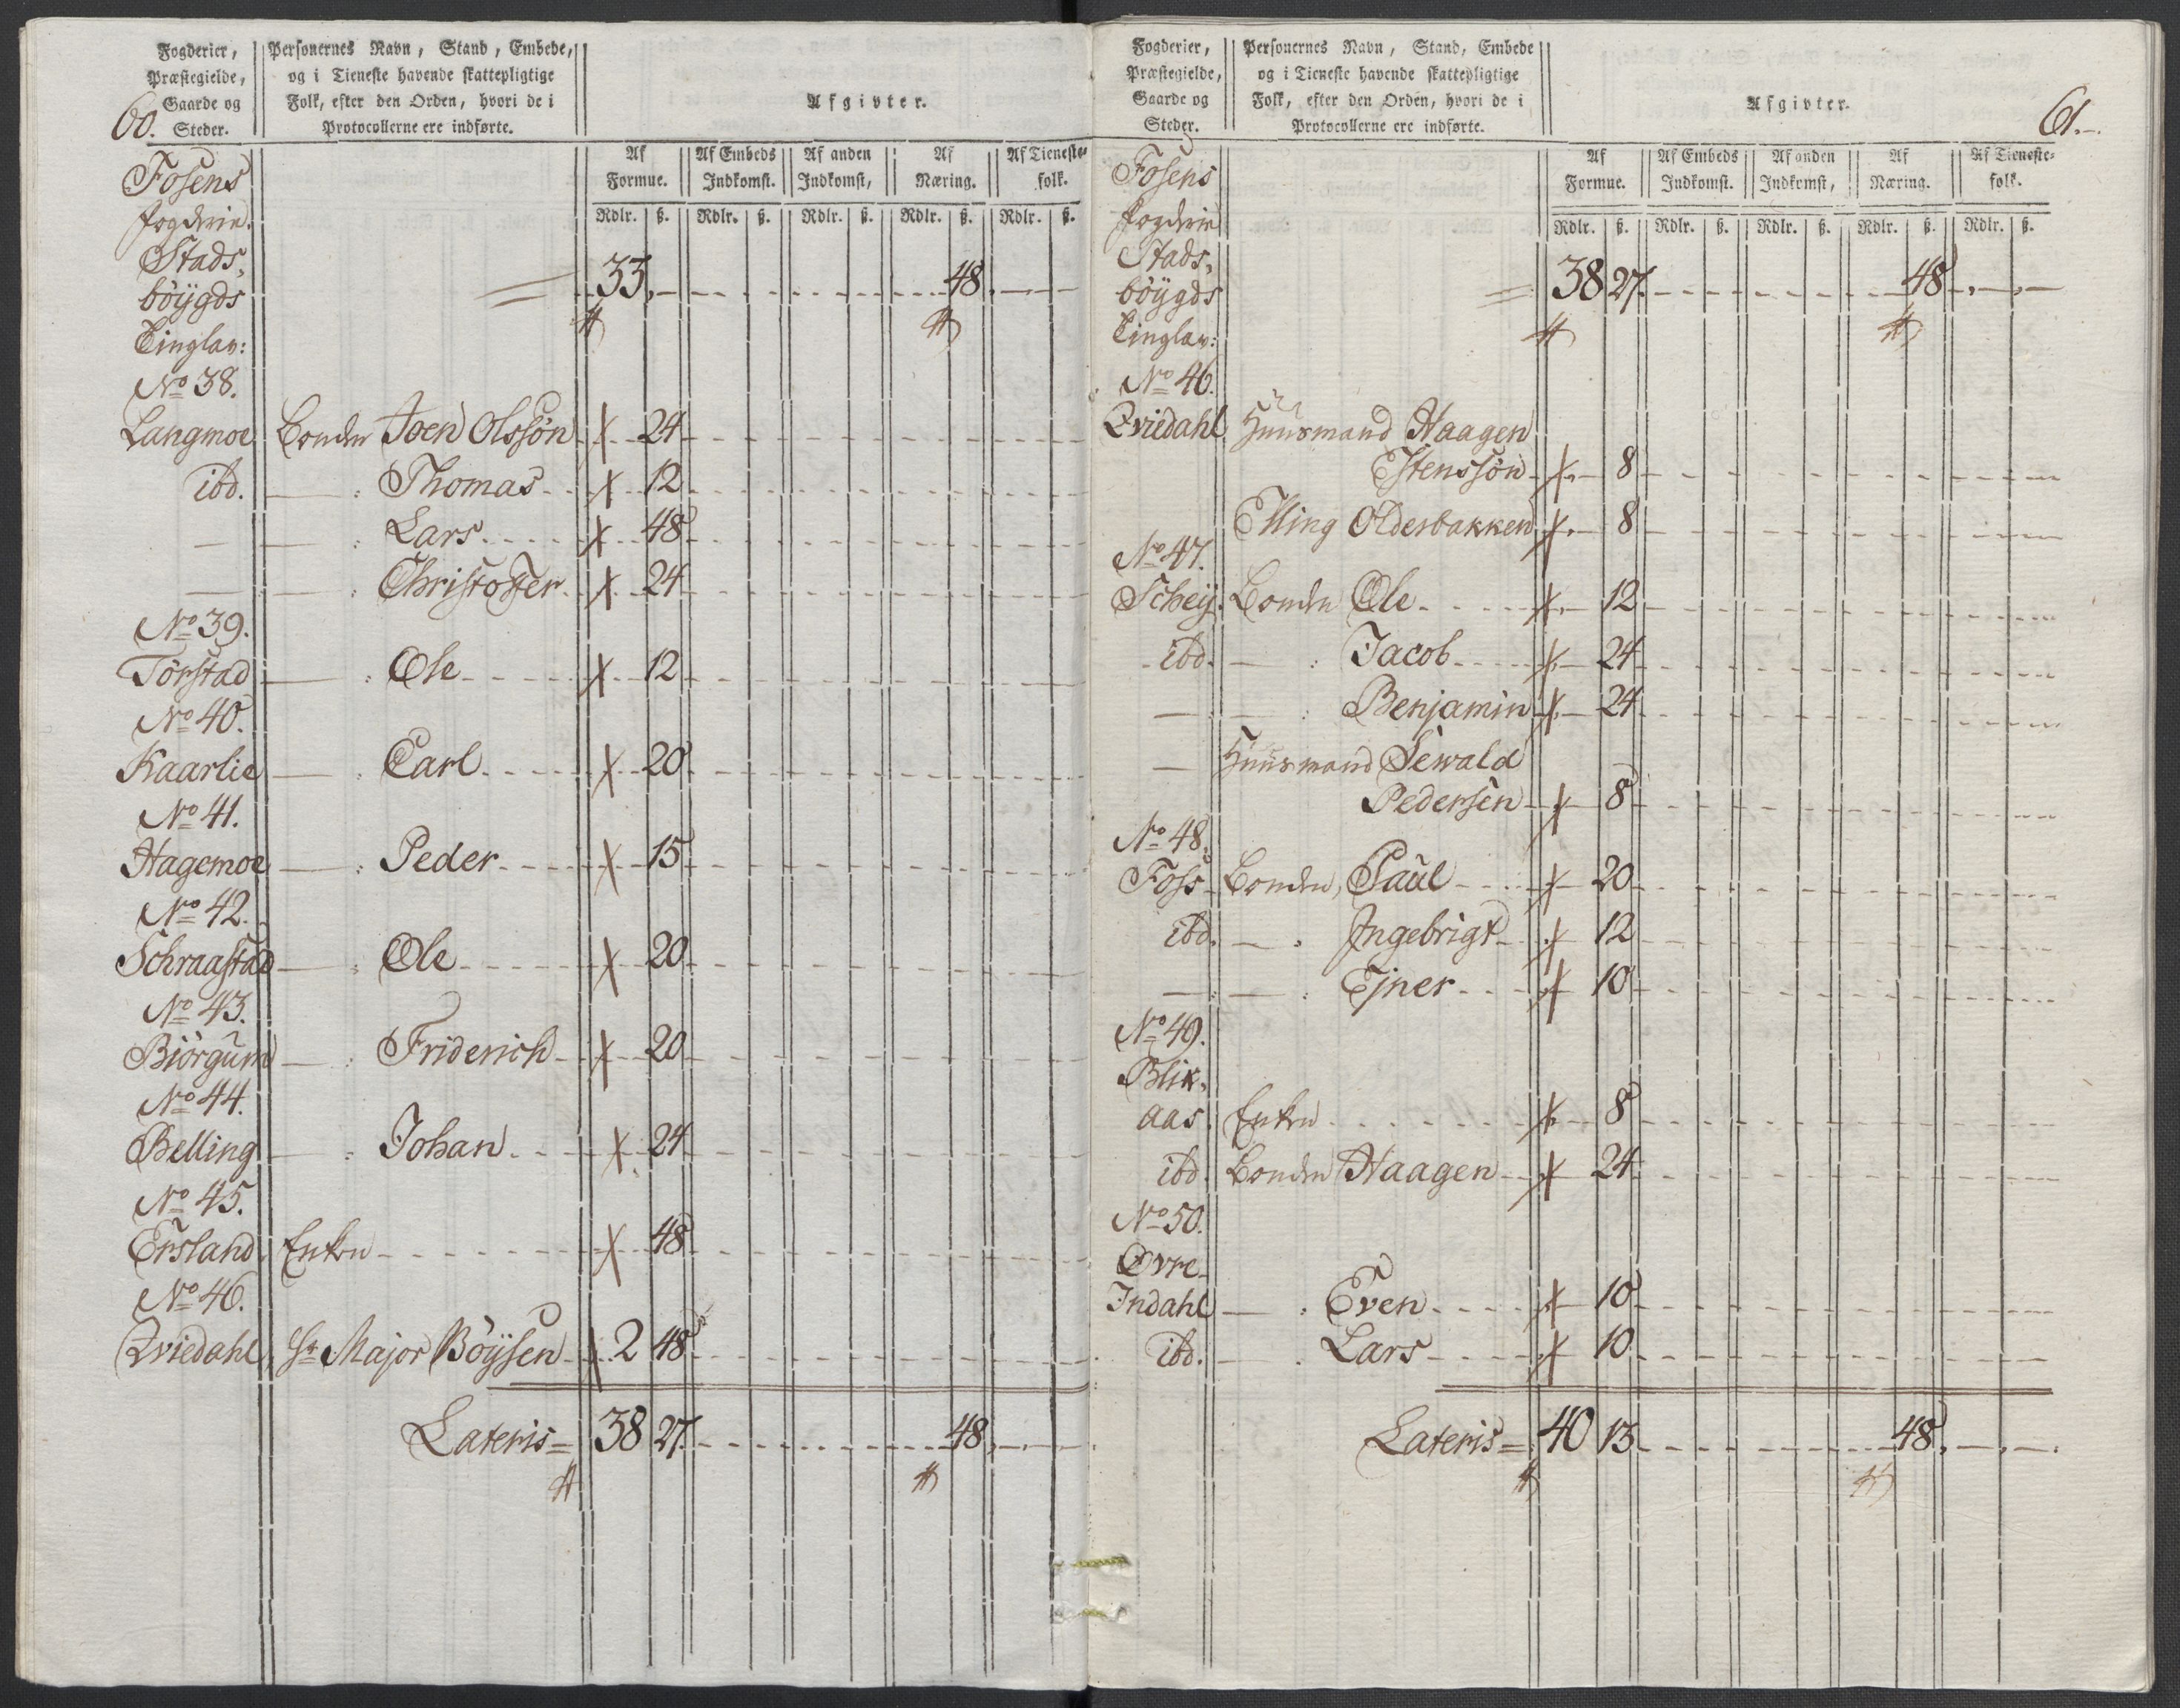 Fogderier,
Præstegielde,
Gaarde og
Steder.
60.
Personernes Navn, Stand, Embede,
og i Tieneste havende skattepligtige
Folk, efter den Orden, hvori de i
Protocollerne ere indførte.
Afgivter.
Af Formue. Af Embeds Indkomst. Af anden Indkomst, Af Næring. Af Tieneste- folk.
Rdlr. ß. Rdlr. ß. Rdlr. ß. Rdlr. ß. Rdlr. ß.
Fosens
fogderie.
Stads,
böÿgds 33. 48.
Tinglav:
No 38.
Langmoe Bonden Joen Olssön 24
ibd. — : Thomas 12
— — : Lars 48
— — : Christoffer 24
No 39.
Törstad — : Ole 12
No 40.
Kaarlie — : Carl 20
No 41.
Hagemoe — : Peder 15
No 42.
Schraastad — : Ole 20
No 43.
Biörgum — : Friderich 20
No 44.
Belling — : Johan 24
No 45.
Ersland Enken 48
No 46.
Qviedahl Hr Major Böÿsen 2 48
Lateris = 38 27. 48.
Fogderier,
Præstegielde,
Gaarde og
Steder.
Personernes Navn, Stand, Embede
og i Tieneste havende skattepligtige
Folk, efter den Orden, hvori de i
Protocollerne ere indførte.
Afgivter.
61.
Af Formue. Af Embeds Indkomst. Af anden Indkomst, Af Næring. Af Tieneste- folk.
Rdlr. ß. Rdlr. ß. Rdlr. ß. Rdlr. ß. Rdlr. ß.
Fosens
fogderie
Stads,
böÿgds 38 27. 48
Tinglav:
No 46.
Qviedahl Huusmand Haagen
Estenssön 8
Elling Oldesbakken 8
No 47.
Schey. Bonden Ole 12
ibd. — : Jacob 24
— — : Benjamin 24
— Huusmand Sewald
Pedersen 8
No 48.
Foss Bonden, Paul 20
ibd. — . Ingebrigt 12
— — : Ejner 10
No 49.
Blik,
aas Enken 8
ibd. Bonden Haagen 24
No 50.
Øvre
Indahl — : Even 10
ibd. — . Lars 10
Lateris = 40 13 48.